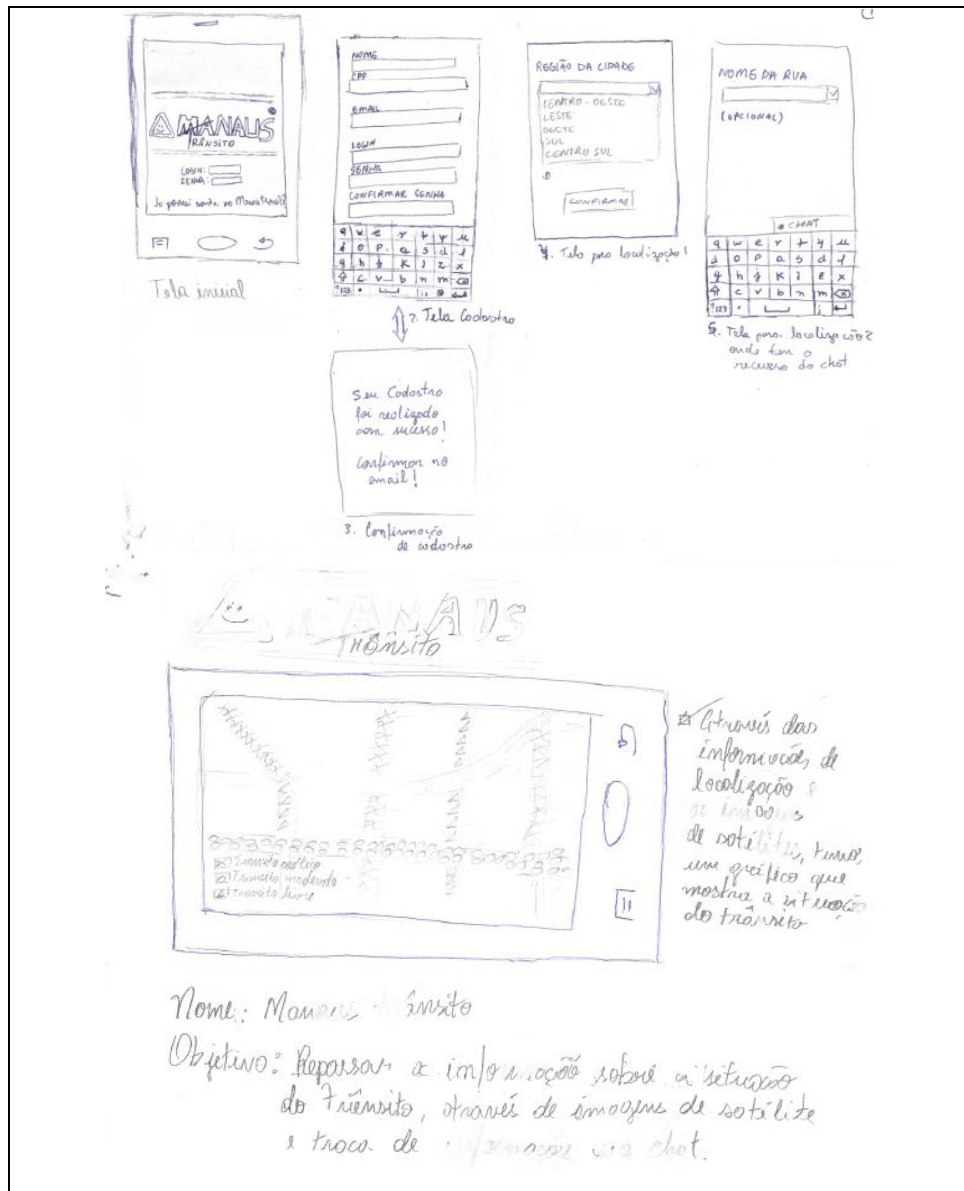 MANAUS
TRÂNSITO
LOGIN:
SENHA:
Tela inicial
NOME
CPF
EMAIL
LOGIN
SENHA
CONFIRMAR SENHA
q w e r t y u
i o p a s d f
g h j k l z x
c v b n m
?123
2. Tela Cadastro
Seu Cadastro
foi realizado
com sucesso!
Confirmar no
email!
3. Confirmação
de cadastro
REGIÃO DA CIDADE
CENTRO-OESTE
LESTE
OESTE
SUL
CENTRO SUL
CONFIRMAR
4. Tela para localização 1
NOME DA RUA
(OPCIONAL)
CHAT
q w e r t y u
i o p a s d f
g h j k l z x
c v b n m
?123
5. Tela para localização 2
onde tem o
recurso do chat
MANAUS
Trânsito
Trânsito caótico
Trânsito moderado
Trânsito livre
Através das
informações de
localização e
as imagens
de satélites, temos
um gráfico que
mostra a situação
do trânsito
Nome: Manaus Trânsito
Objetivo: Repassar a informação sobre a situação
do Trânsito, através de imagens de satélite
e troca de informações via chat.